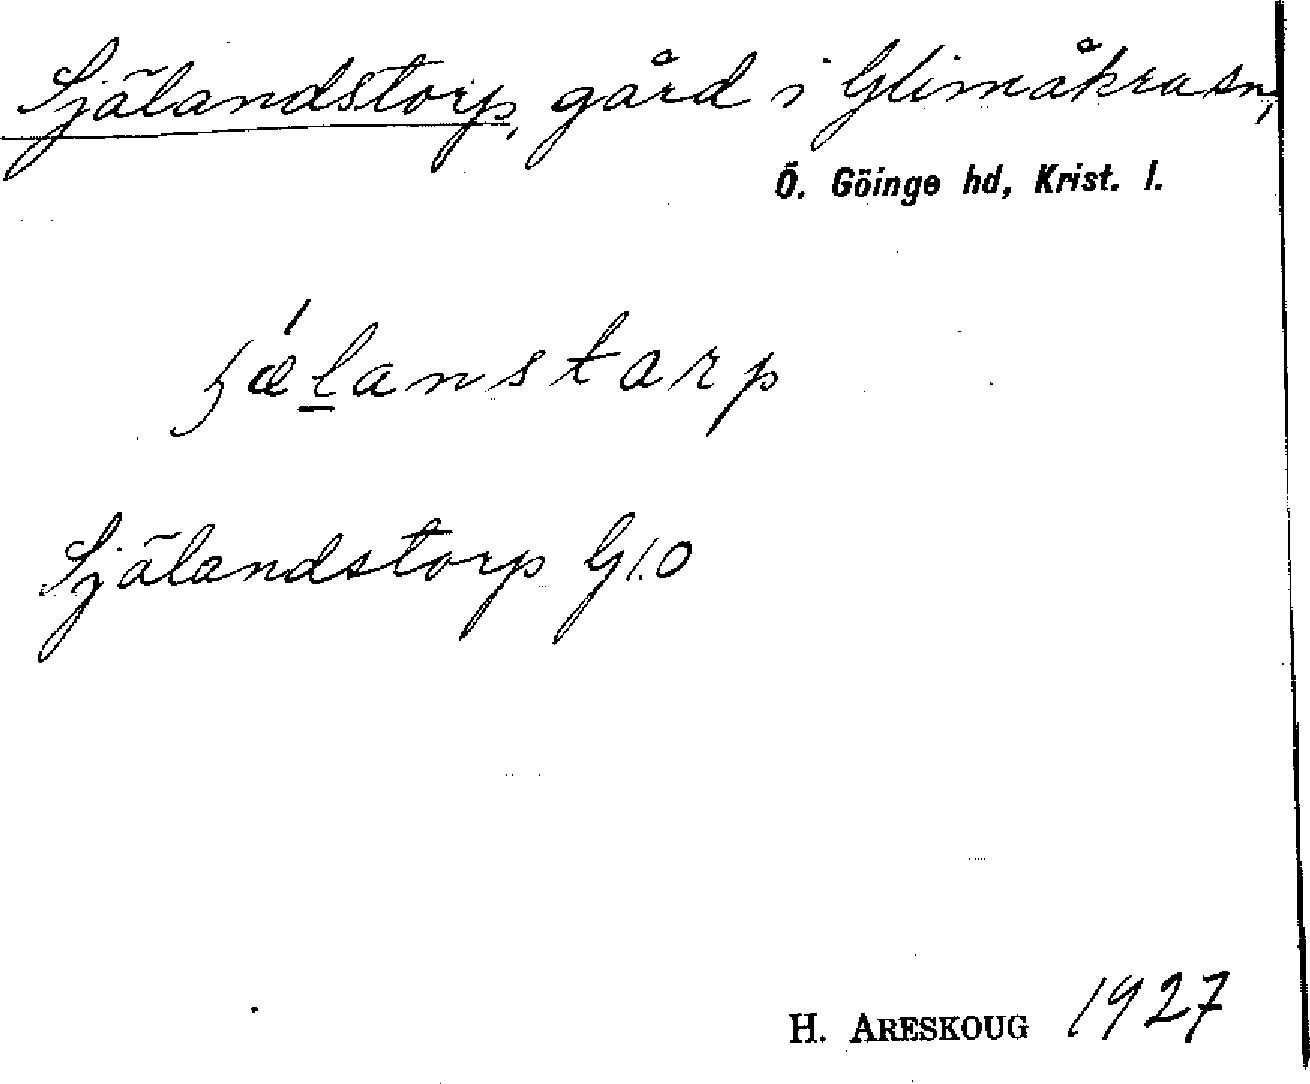 Själandstorp, gård i Glimåkra sn,
Ö. Göinge hd, Krist. l.
ʃǽlanstarp
Själandstorp G1.0
H. ARESKOUG 1927